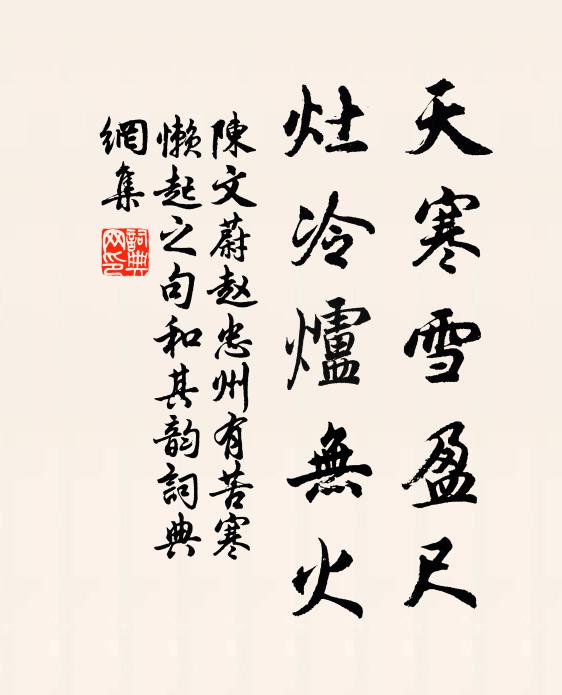 天寒雪盈尺
灶冷爐無火
陳文蔚赵忠州有苦寒
懒起之句和其韵詞典
網集
詞典網印